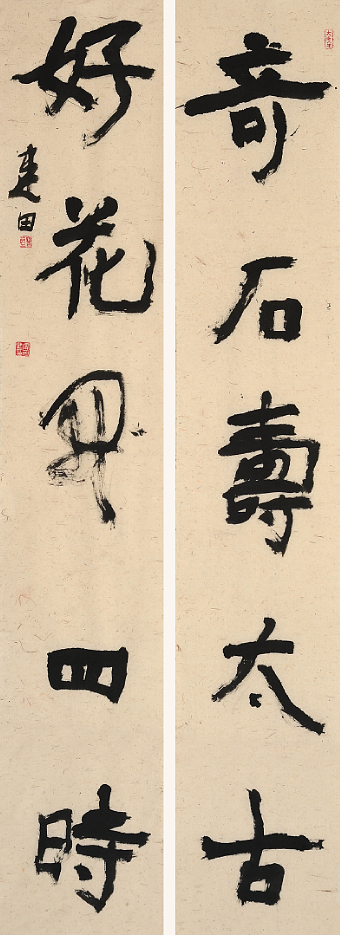 奇石壽太古
好花開四時
建田